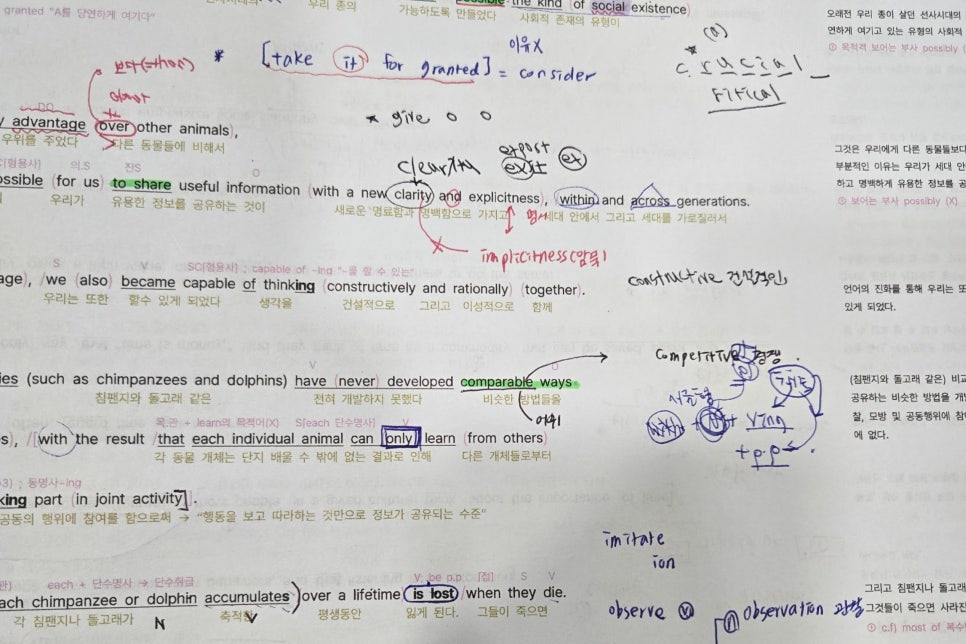 the kind (of social existence)
granted "A를 당연하게 여기다"
우리 종의 가능하도록 만들었다 사회적 존재의 유형이
오래전 우리 종이 살던 선사시대의
연하게 여기고 있는 유형의 사회적
① 목적격 보어는 부사 possibly (
이유X
* [take it for granted] = consider
보다(~하여)
* (a)
c.rucial_
ritical
DO
y advantage over other animals),
우위를 주었다 다른 동물들에 비해서
* give o o
그것은 우리에게 다른 동물들보다
부분적인 이유는 우리가 세대 안
하고 명백하게 유용한 정보를 공
① 보어는 부사 possibly (X)
의.S 진S O
ossible (for us) to share useful information (with a new clarity and explicitness), within and across generations.
우리가 유용한 정보를 공유하는 것이 새로운 명료함과 명백함으로 가지고 명사 세대 안에서 그리고 세대를 가로질러서
implicitness(암묵)
S V SC[형용사] ; capable of -ing "~를 할 수 있는"
age), /we (also) became capable of thinking (constructively and rationally) (together).
우리는 또한 할수 있게 되었다 생각을 건설적으로 그리고 이성적으로 함께
constructive 건설적인
언어의 진화를 통해 우리는 또
있게 되었다.
V O
ies (such as chimpanzees and dolphins) have (never) developed comparable ways
침팬지와 돌고래 같은 전혀 개발하지 못했다 비슷한 방법들을
어휘
competitive 경쟁
with + N + Ving
+ p.p
(침팬지와 돌고래 같은) 비교
공유하는 비슷한 방법을 개발
찰, 모방 및 공동행위에 참여
에 없다.
목.관 + learn의 목적어(X) S[each 단수명사] V
s), /[with the result /that each individual animal can only learn (from others)
각 동물 개체는 단지 배울 수 밖에 없는 결과로 인해 다른 개체들로부터
3) ; 동명사-ing
king part (in joint activity].
공동의 행위에 참여를 함으로써 → "행동을 보고 따라하는 것만으로 정보가 공유되는 수준"
imitate
ion
each + 단수명사 → 단수취급 V; be p.p. [접] S V
ach chimpanzee or dolphin accumulates) over a lifetime is lost when they die.
각 침팬지나 돌고래가 N 축적한 V 평생동안 잃게 된다. 그들이 죽으면
observe ⓥ
ⓝ observation 관찰
그리고 침팬지나 돌고래
그것들이 죽으면 사라진
① c.f) most of 복수